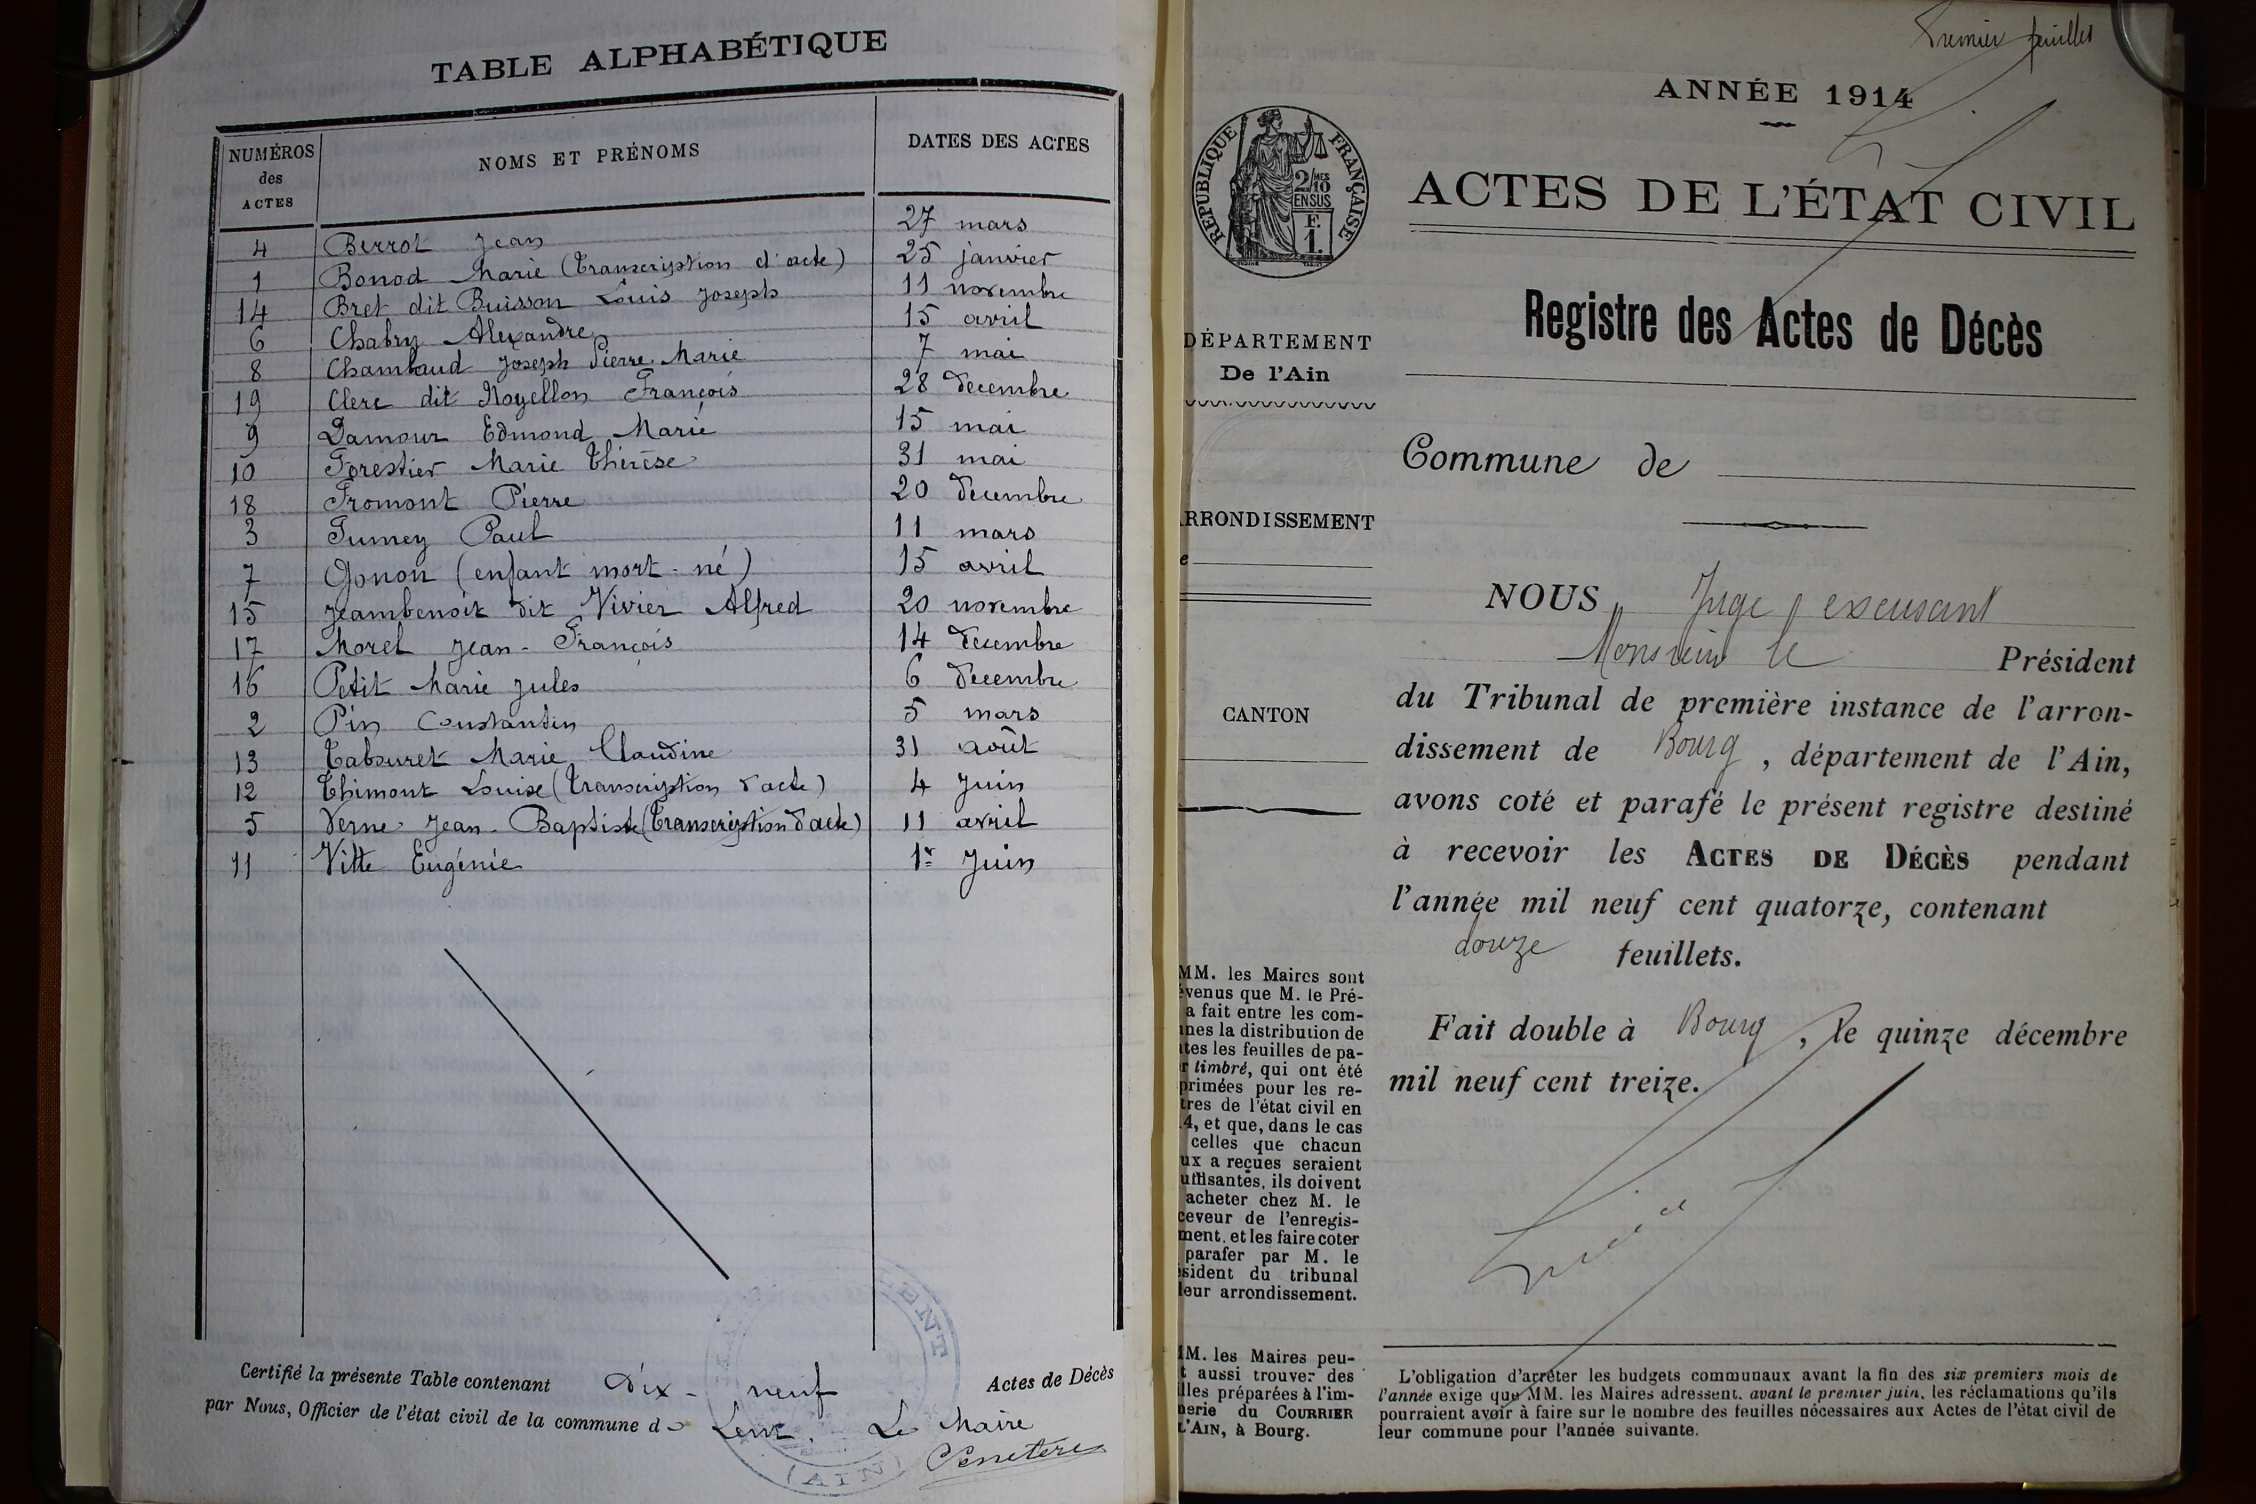 TABLE ALPHABÉTIQUE
NUMÉROS des ACTES NOMS ET PRÉNOMS DATES DES ACTES
4 Berrot Jean 27 mars
1 Bonod Marie (Transcription d'acte) 25 janvier
14 Bret dit Buisson Louis Joseph 11 novembre
6 Chabry Alexandre 15 avril
8 Chambaud Joseph Pierre Marie 7 mai
19 Clerc dit Noyellon François 28 decembre
9 Damour Edmond Marie 15 mai
10 Forestier Marie Thérèse 31 mai
18 Fromont Pierre 20 decembre
3 Fumey Paul 11 mars
7 Gonon (enfant mort-né) 15 avril
15 Jeambenoit dit Vivier Alfred 20 novembre
17 Morel Jean-François 14 decembre
16 Petit Marie Jules 6 decembre
2 Pin Constantin 5 mars
13 Tabouret Marie Claudine 31 août
12 Thimont Louise (Transcription d'acte) 4 Juin
5 Verne Jean-Baptiste (Transcription d'acte) 11 avril
11 Vitte Eugénie 1er Juin
Certifié la présente Table contenant Dix-neuf Actes de Décès
par Nous, Officier de l'état civil de la commune de Lent. Le Maire
LENT
(AIN)
Premier feuillet
ANNÉE 1914
RÉPUBLIQUE FRANÇAISE
2/10MES
EN SUS
F.
1.
ACTES DE L'ÉTAT CIVIL
Registre des Actes de Décès
DÉPARTEMENT
De l'Ain
RRONDISSEMENT
e
CANTON
MM. les Maires sont
évenus que M. le Pré-
a fait entre les com-
nes la distribution de
tes les feuilles de pa-
r timbré, qui ont été
primées pour les re-
tres de l'état civil en
4, et que, dans le cas
celles que chacun
ux a reçues seraient
uffisantes, ils doivent
acheter chez M. le
ceveur de l'enregis-
ment, et les faire coter
parafer par M. le
ésident du tribunal
leur arrondissement.
MM. les Maires peu-
t aussi trouver des
lles préparées à l'im-
nerie du COURRIER
L'AIN, à Bourg.
Commune de
NOUS Juge excusant
Monsieur le Président
du Tribunal de première instance de l'arron-
dissement de Bourg, département de l'Ain,
avons coté et parafé le présent registre destiné
à recevoir les ACTES DE DÉCÈS pendant
l'année mil neuf cent quatorze, contenant
douze feuillets.
Fait double à Bourg, le quinze décembre
mil neuf cent treize.
L'obligation d'arrêter les budgets communaux avant la fin des six premiers mois de
l'année exige que MM. les Maires adressent, avant le premier juin, les réclamations qu'ils
pourraient avoir à faire sur le nombre des feuilles nécessaires aux Actes de l'état civil de
leur commune pour l'année suivante.